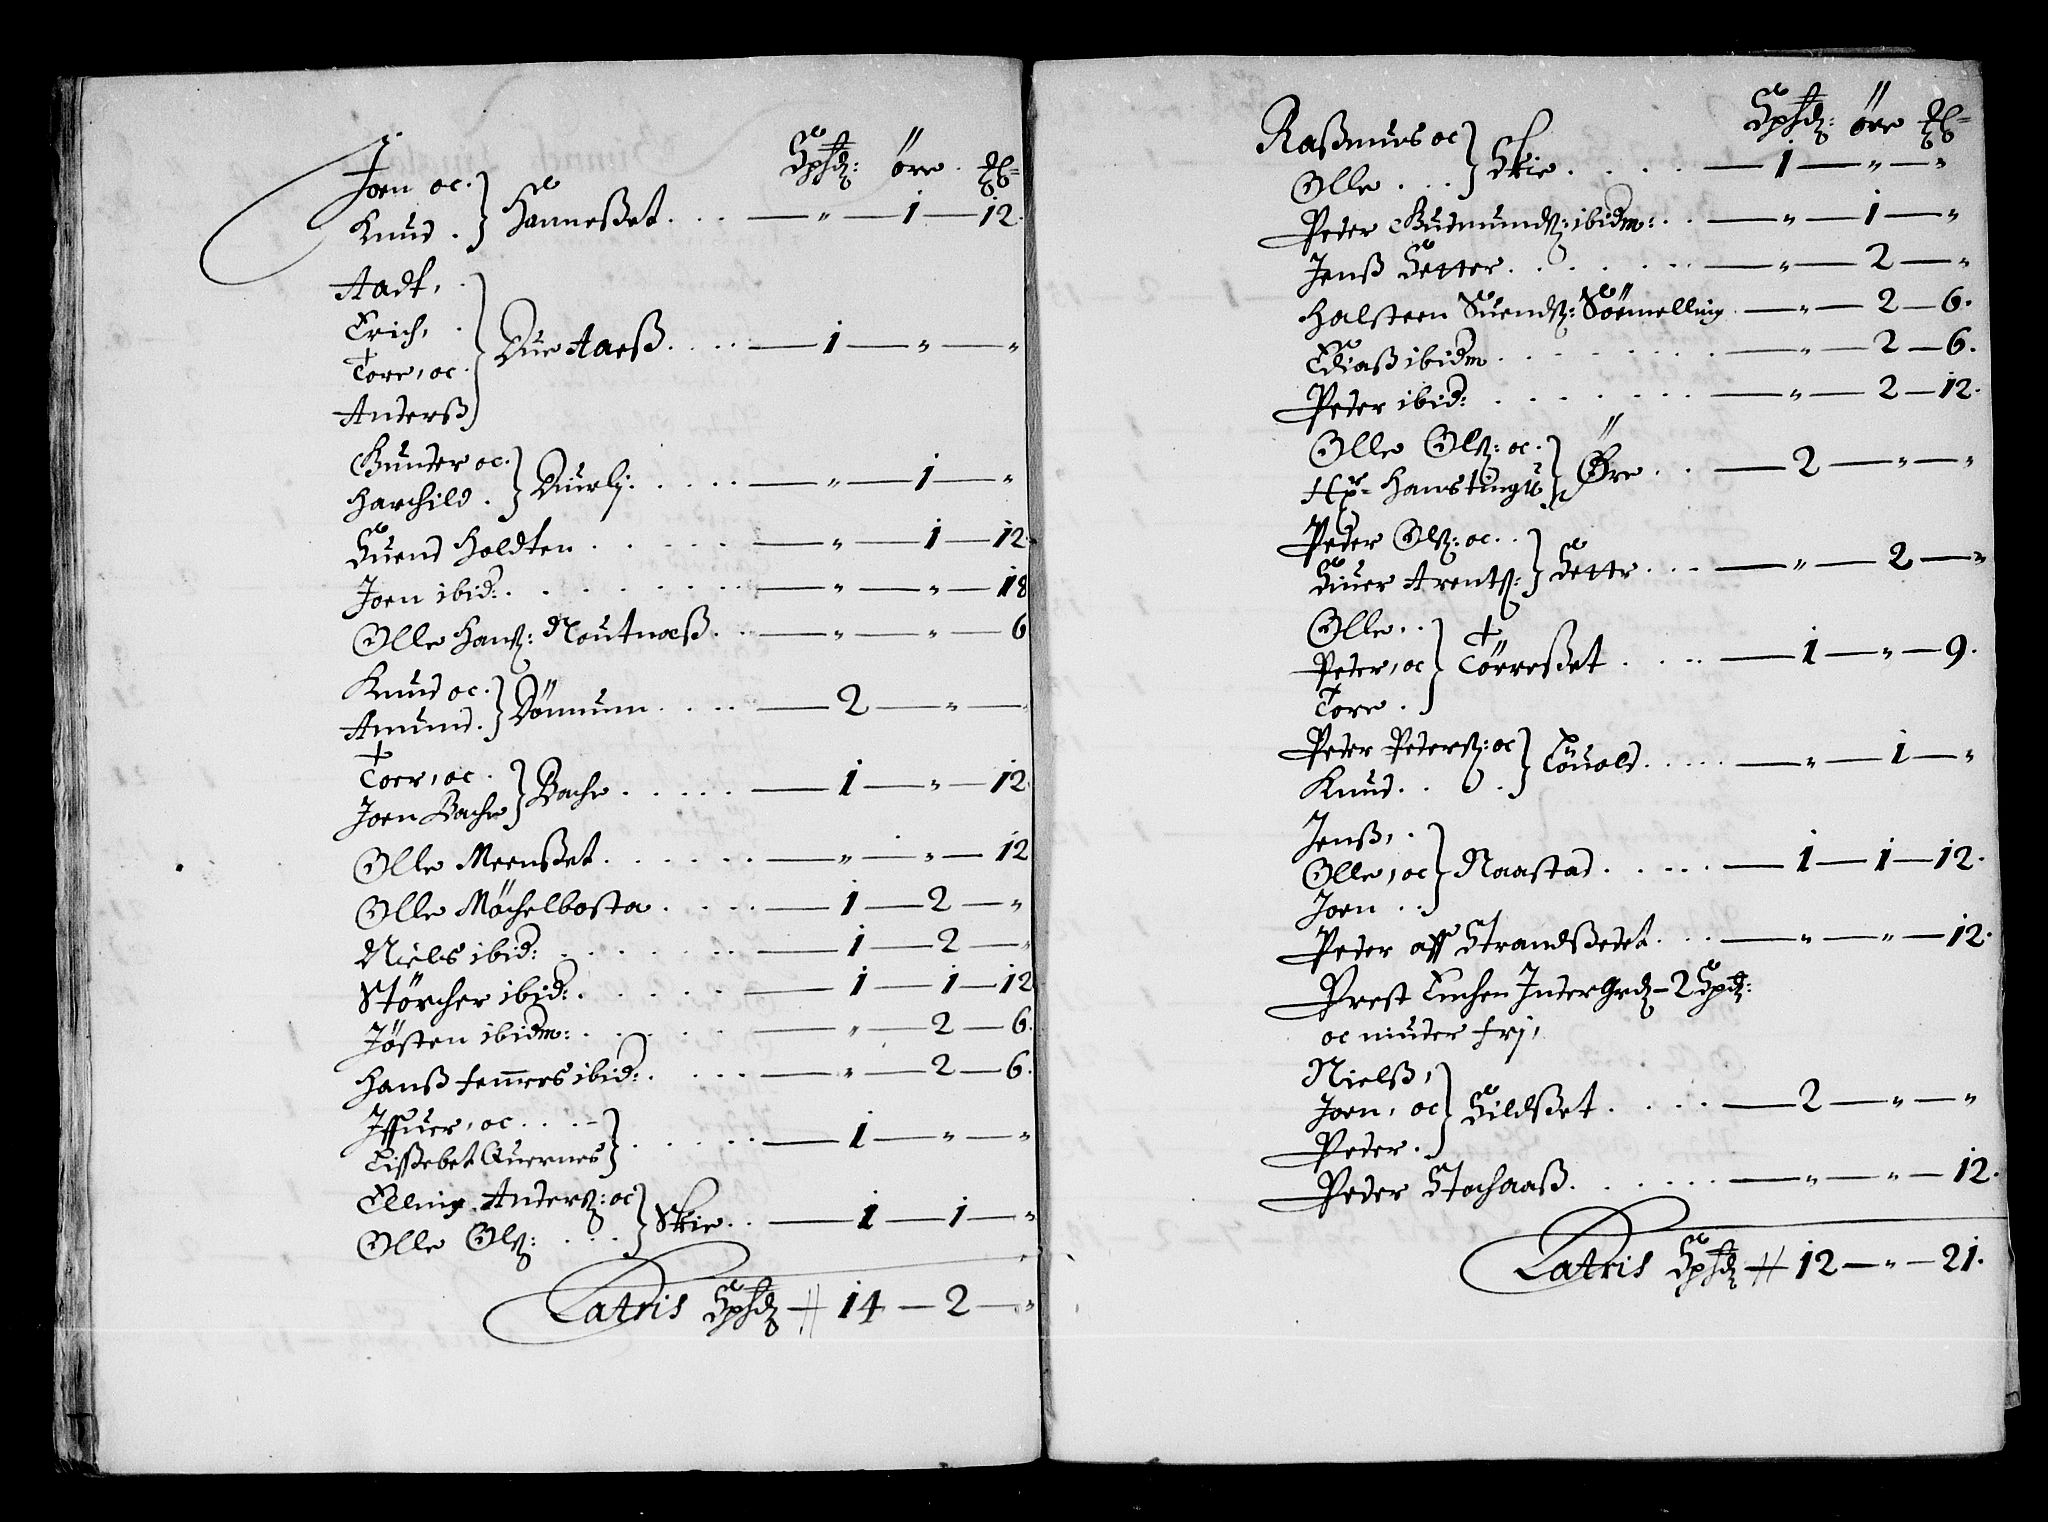 Spdz: öre
Joen oc
Knud . } Hanneßet . . . — " — 1 — 12.
Aadt,
Erich,
Tore, oc
Anderß } Aaeß . . . — 1 — " — "
Gunder oc
Harchild . } Duurlj . . . . — " — 1 — "
Suend Holdten . . . . . — " — 1 — 12
Joen ibid: . . . . . . — " — " — 18
Olle Hanß: Noutnæß . . — " — " — 6
Knud oc
Amund . } Dönnum . . . . — 2 — " —
Toer, oc
Joen Bache } Bache . . . . . — 1 — " — 12
Olle Meenßet . . . . . . — " — " — 12
Olle Möchelbosta . . . . — 1 — 2 — "
Niels ibid: . . . . . . — 1 — 2 — "
Störcher ibid: . . . . . — 1 — 1 — 12
Jösten ibidm: . . . . . — " — 2 — 6.
Hanß femers ibid: . . . . — " — 2 — 6.
Iffuer, oc . . . .
Lissebet Quernes } . . . . . — 1 — " — "
Elling Anderß: oc
Olle Olß: . . . } Skie . . — 1 — 1 — "
Latris Spdz — 14 — 2 — "
Spdz: öre
Raßmus oc
Olle . . . } Skie . . . . — 1 — " — "
Peder Gudmundß: ibidm: . . — " — 1 — "
Jenß Setter . . . . . . — " — 2 — "
Halsteen Suendß: Söemelling — " — 2 — 6.
Ediaß ibidm . . . . . . — " — 2 — 6.
Peder ibid: . . . . . . — " — 2 — 12.
Olle Olß: oc
Hanstings } Øre . . — 2 — " — "
Peder Olß: oc . .
Siuer Arentß: } Settr . . . . — " — 2 — "
Olle . .
Peter, oc
Tore . } Törreßet . . . . — 1 — " — 9.
Peder Peterß: oc
Knud . . . } Löuold . . . . . — " — 1 — "
Jenß, .
Olle, oc
Joen . . } Naastad . . . . . — 1 — 1 — 12.
Peder aff Strandßedet . . . — " — " — 12.
Prest Enchen Inter Grdz — 2 Spdz:
oc muder frj,
Nielß,
Joen, oc
Peder . } Sildßet . . . . — 2 — " — "
Peder Stochaaß . . . . . . — " — " — 12.
Latris Spdz — 12 — " — 21.